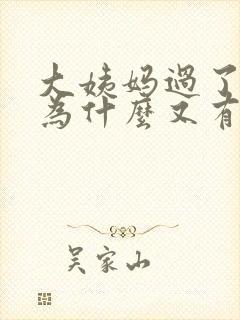 大姨妈過了
為什麼又有
吴家山